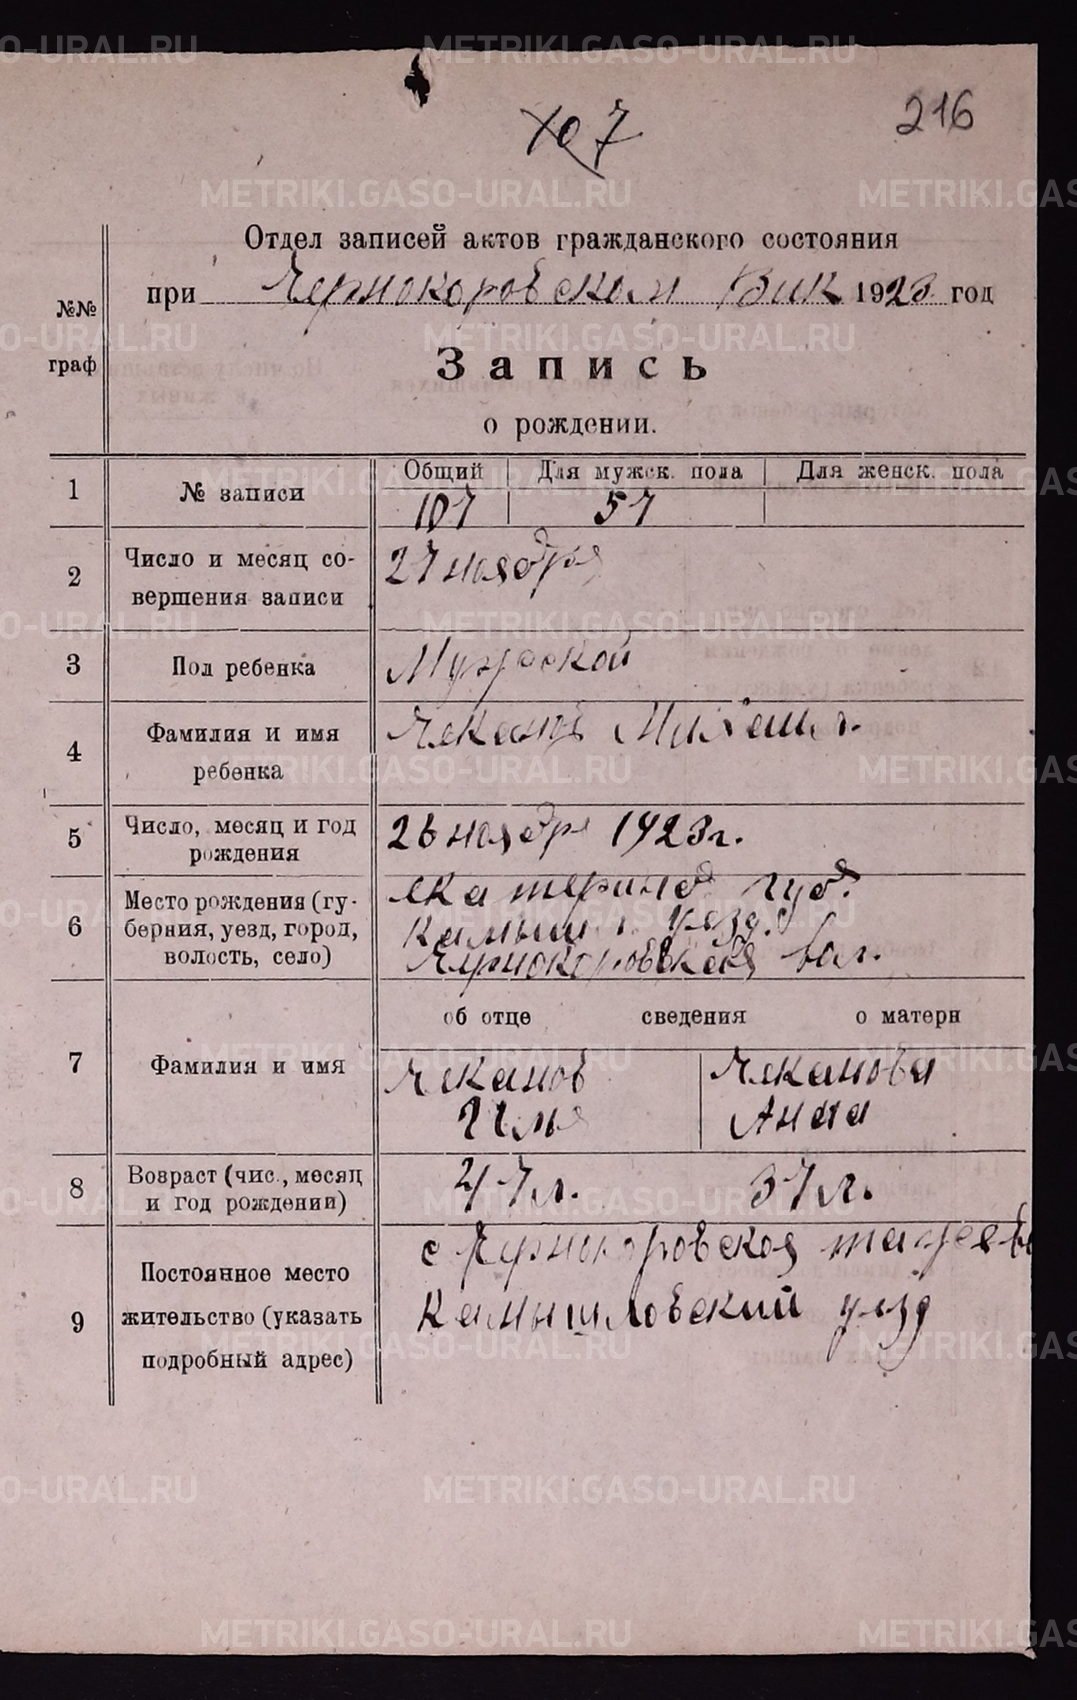 216
107
Отдел записей актов гражданского состояния
при Чернокоровском Вик 1923 год
№№ граф
Запись
о рождении.
Общий Для мужск. пола Для женск. пола
1 № записи 107 57
2 Число и месяц со-
вершения записи 27 ноября
3 Пол ребенка Мужской
4 Фамилия и имя
ребенка Чеканов
5 Число, месяц и год
рождения 26 ноября 1923 г.
6 Место рождения (гу-
берния, уезд, город,
волость, село)
Екатеринб губ.
Камышл. уезд.
Чернокоровская вол.
об отце сведения о матери
7 Фамилия и имя
Чеканов Чеканова
Илья Анна
8 Возраст (чис., месяц
и год рождения) 47 л. 37 л.
9 Постоянное место
жительство (указать
подробный адрес)
с Чернокоровская
Камышловский уезд
METRIKI.GASO-URAL.RU